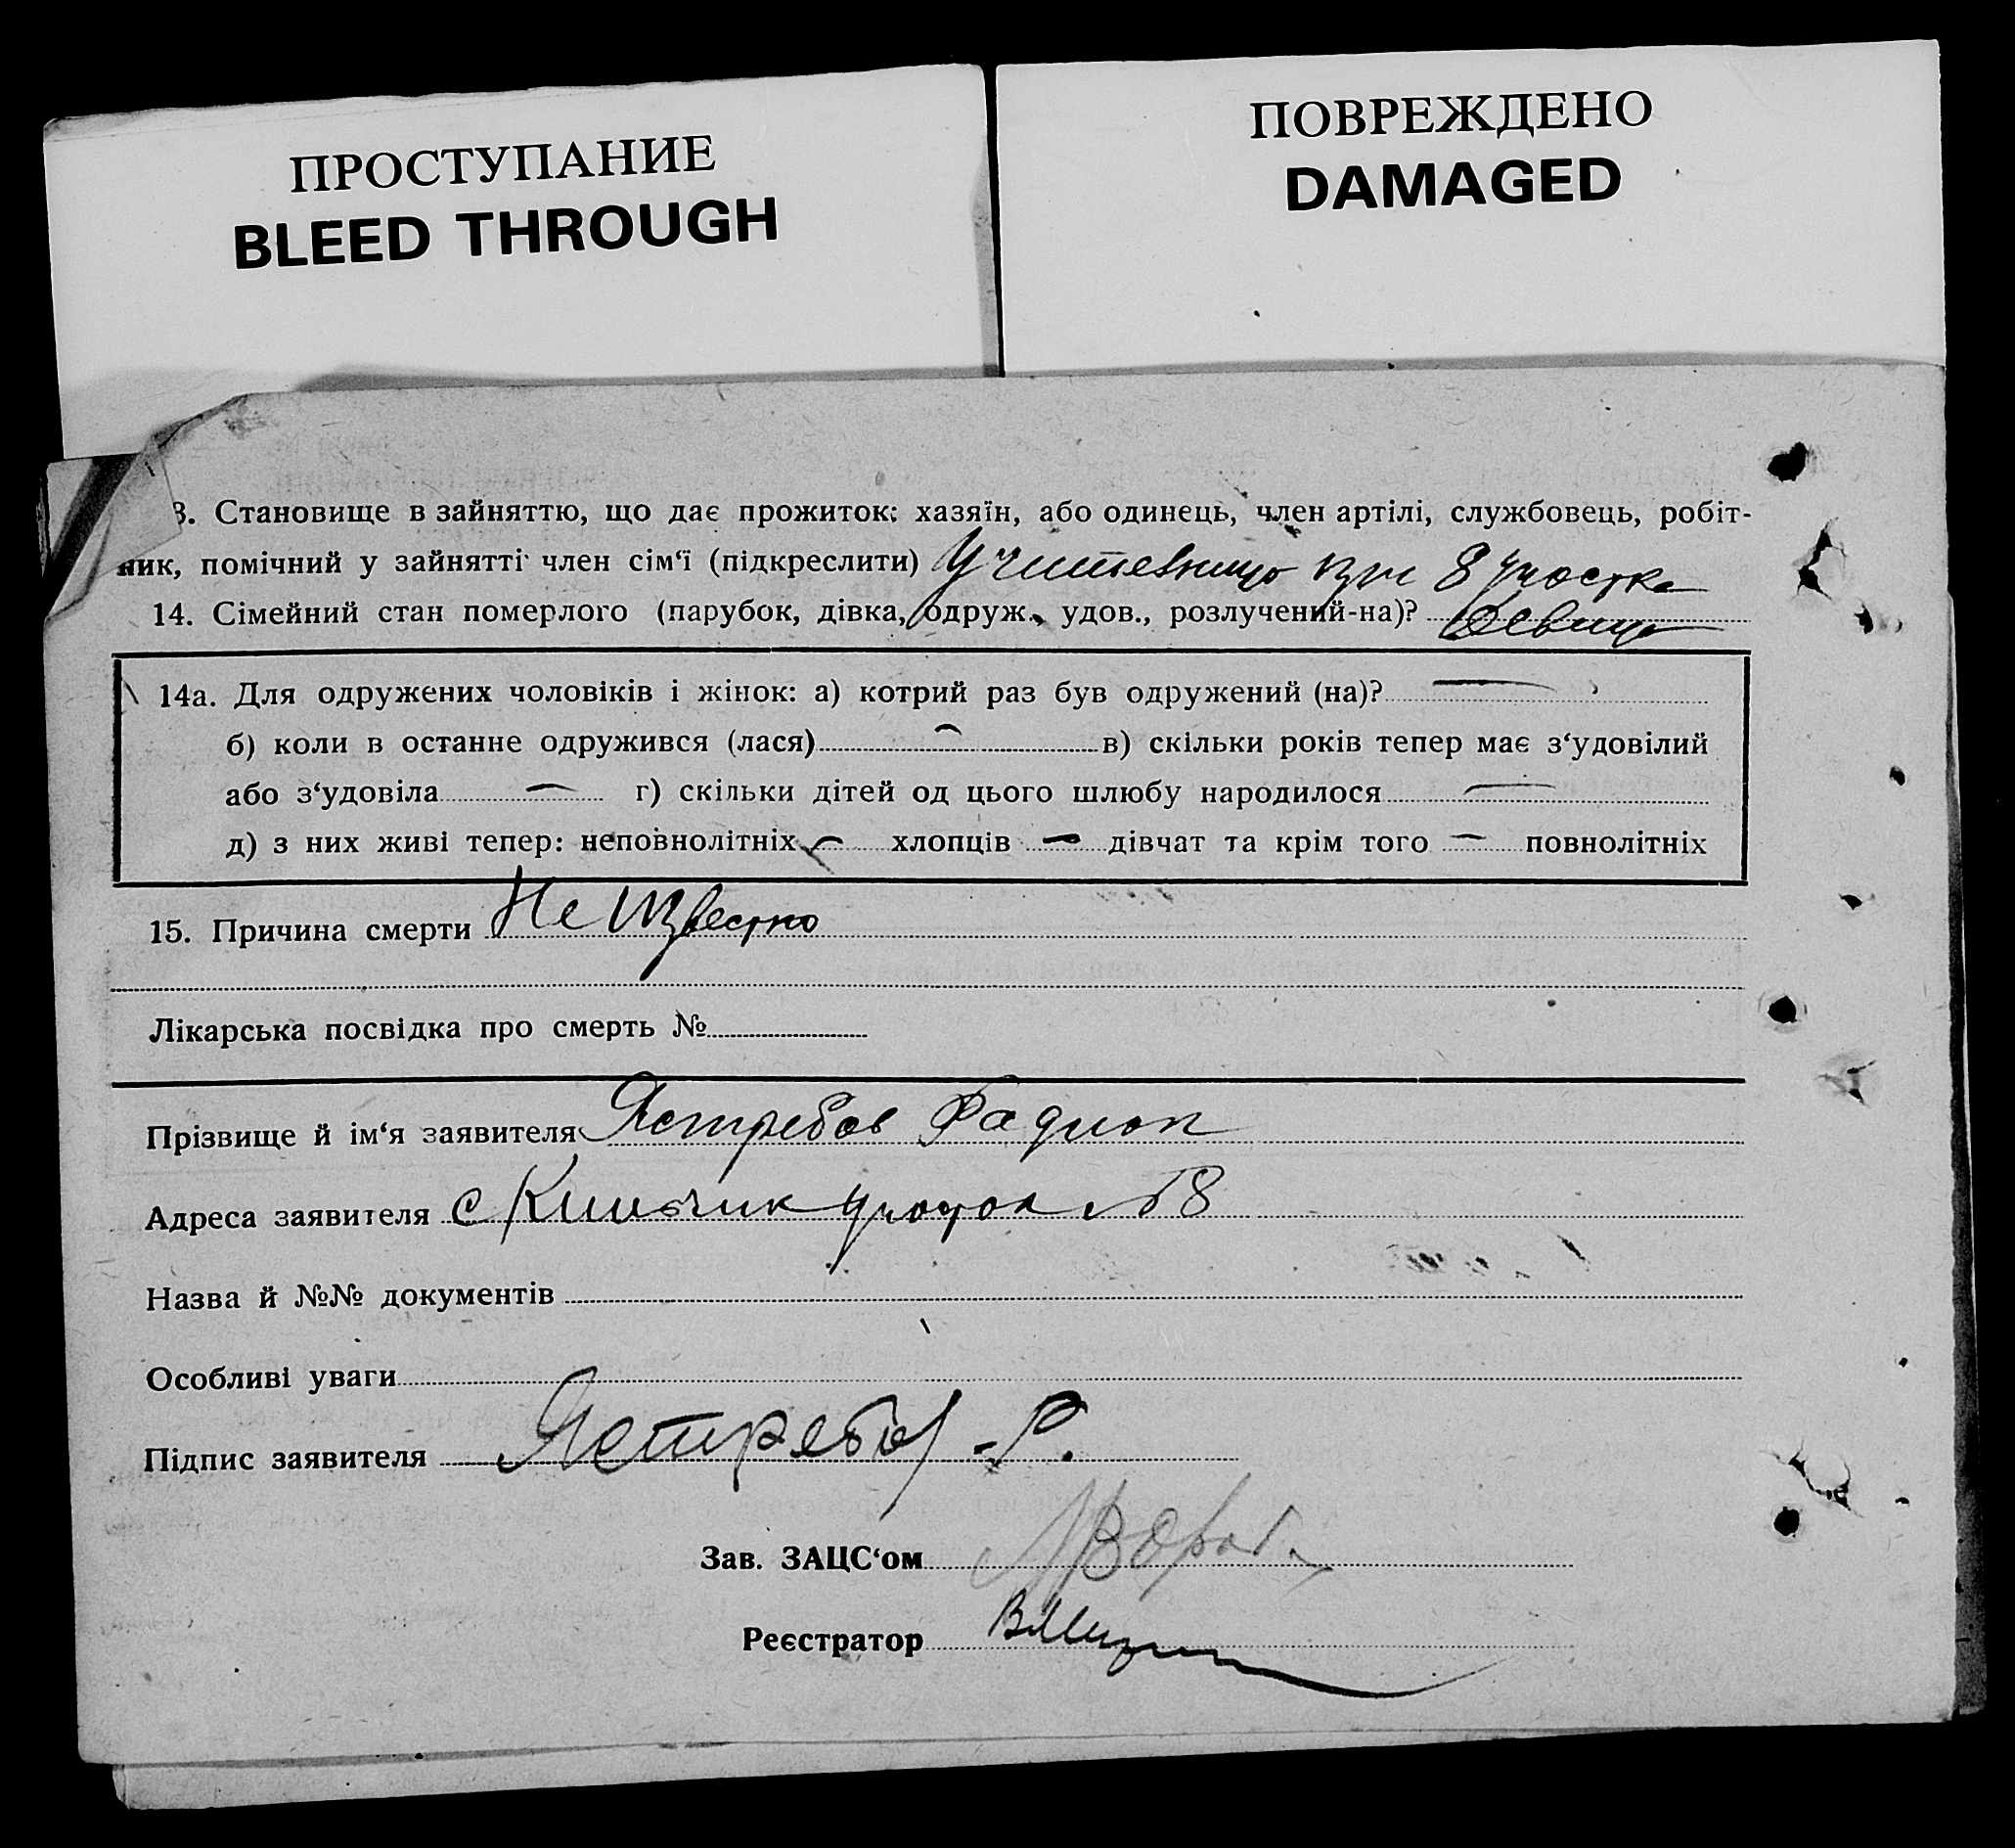 ПРОСТУПАНИЕ
BLEED THROUGH
ПОВРЕЖДЕНО
DAMAGED
3. Становище в зайняттю, що дає прожиток: хазяїн, або одинець, член артілі, службовець, робіт-
ник, помічний у зайнятті член сім‘ї (підкреслити) Учительница при 8 участке
14. Сімейний стан померлого (парубок, дівка, одруж., удов., розлучений-на)? девица
14а. Для одружених чоловіків і жінок: а) котрий раз був одружений (на)? —
б) коли в останне одружився (лася) — в) скільки років тепер має з‘удовілий
або з‘удовіла — г) скільки дітей од цього шлюбу народилося —
д) з них живі тепер: неповнолітніх — хлопців — дівчат та крім того — повнолітніх
15. Причина смерти Не Известно
Лікарська посвідка про смерть №
Прізвище й ім‘я заявителя Ястребов Радион
Адреса заявителя с участок №8
Назва й №№ документів
Особливі уваги
Підпис заявителя Ястребов -Р.
Зав. ЗАЦС‘ом
Реєстратор